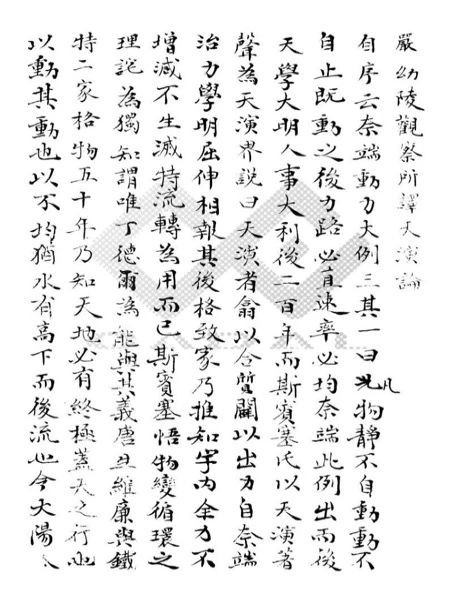 嚴幼陵觀察所譯天演論
自序云奈端動力大例三其一曰凡物靜不自動動不
自止既動之後力路必直速率必均奈端此例出而後
天學大明人事大利後二百年而斯賓塞氏以天演著
聲為天演界說曰天演者翕以合質闢以出力自奈端
治力學明屈伸相報其後格致家乃推知宇內全力不
增減不生滅特流轉為用而已斯賓塞悟物變循環之
理詫為獨知謂唯丁德爾為能與其義唐生維廉與鐵
特二家格物五十年乃知天地必有終極蓋天之行也
以動其動也以不均猶水有高下而後流也今大陽